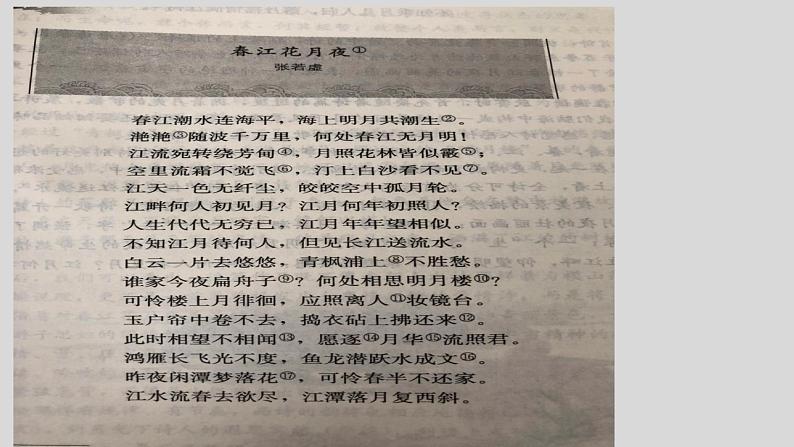 春江花月夜①
张若虚
春江潮水连海平，海上明月共潮生②。
滟滟③随波千万里，何处春江无月明！
江流宛转绕芳甸④，月照花林皆似霰⑤；
空里流霜不觉飞⑥，汀上白沙看不见⑦。
江天一色无纤尘，皎皎空中孤月轮。
江畔何人初见月？江月何年初照人？
人生代代无穷已，江月年年望相似。
不知江月待何人，但见长江送流水。
白云一片去悠悠，青枫浦上⑧不胜愁。
谁家今夜扁舟子⑨？何处相思明月楼⑩？
可怜楼上月徘徊，应照离人⑪妆镜台。
玉户帘中卷不去，捣衣砧上拂还来⑫。
此时相望不相闻⑬，愿逐⑭月华⑮流照君。
鸿雁长飞光不度，鱼龙潜跃水成文⑯。
昨夜闲潭梦落花⑰，可怜春半不还家。
江水流春去欲尽，江潭落月复西斜。